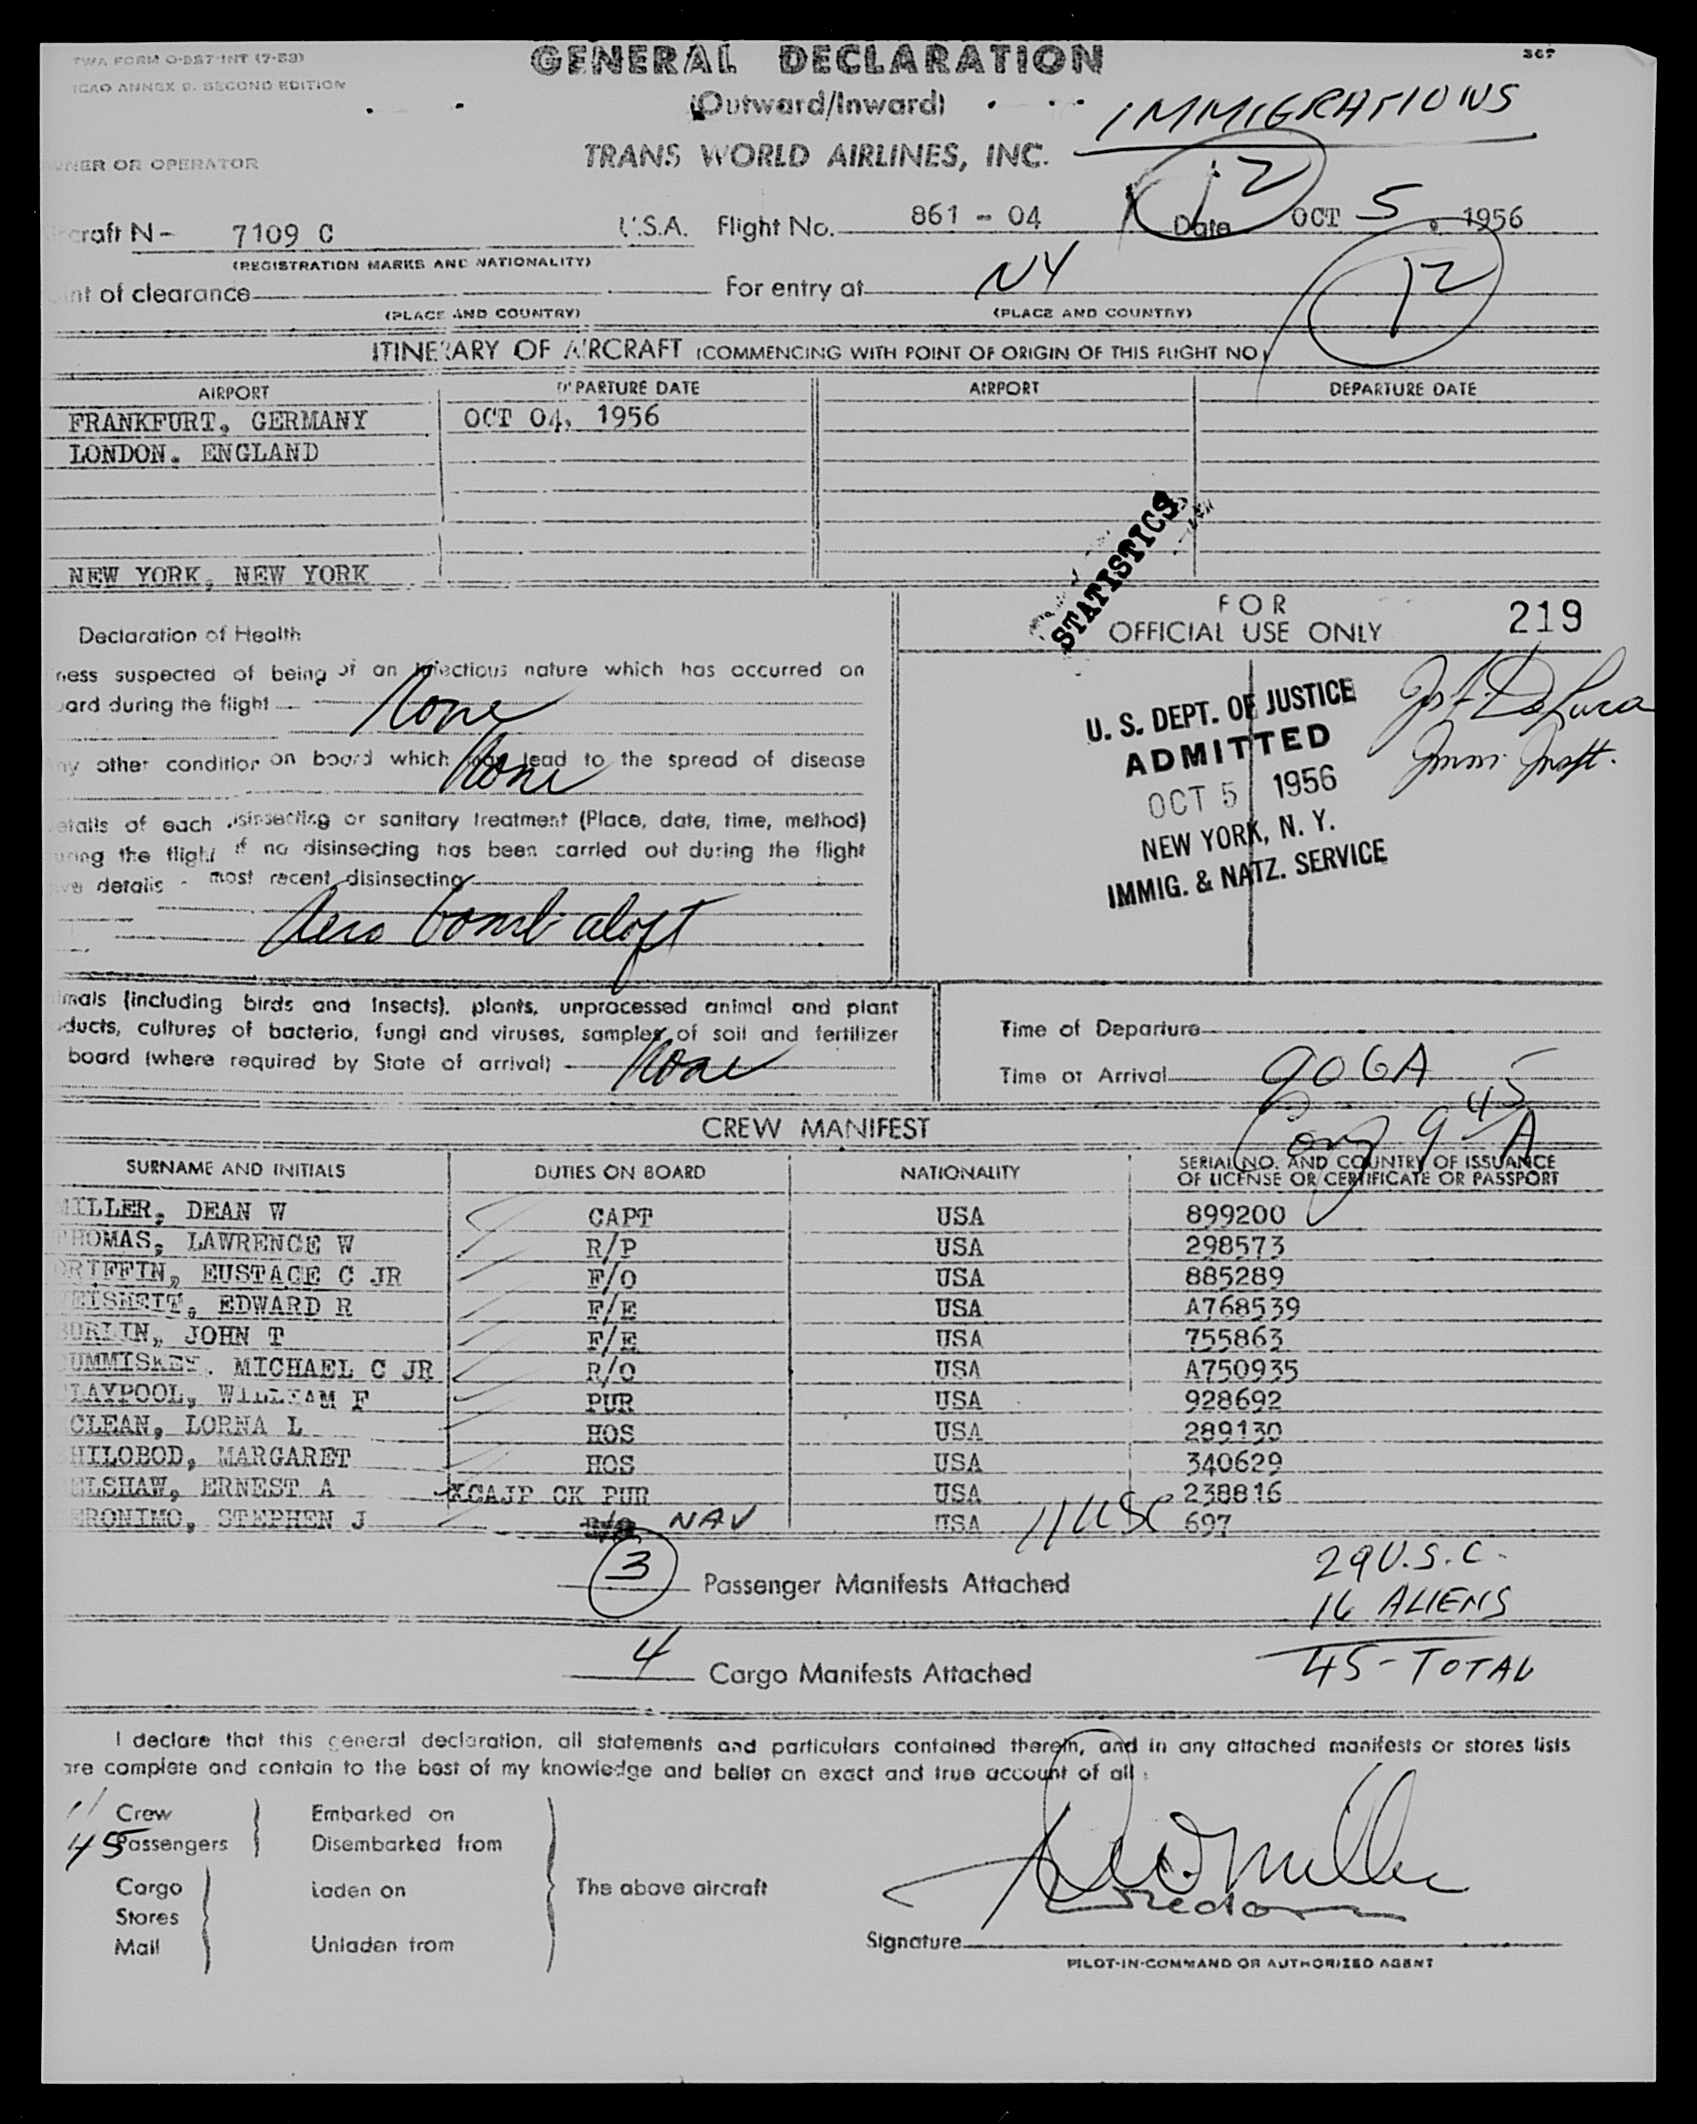 TWA FORM O-357-INT (7-53)
ICAO ANNEX 9. SECOND EDITION
GENERAL DECLARATION
367
(Outward/Inward)
IMMIGRATIONS
OWNER OR OPERATOR
TRANS WORLD AIRLINES, INC.
12
craft N- 7109 C U.S.A. Flight No. 861 - 04 Date OCT 5, 1956
(REGISTRATION MARKS AND NATIONALITY)
int of clearance For entry at NY
12
(PLACE AND COUNTRY) (PLACE AND COUNTRY)
ITINERARY OF AIRCRAFT (COMMENCING WITH POINT OF ORIGIN OF THIS FLIGHT NO)
AIRPORT DEPARTURE DATE AIRPORT DEPARTURE DATE
FRANKFURT, GERMANY OCT 04, 1956
LONDON. ENGLAND
NEW YORK, NEW YORK
STATISTICS
FOR
OFFICIAL USE ONLY
219
Declaration of Health
ness suspected of being of an infectious nature which has occurred on
oard during the flight None
ny other condition on board which may lead to the spread of disease
None
etails of each disinsecting or sanitary treatment (Place, date, time, method)
uring the flight if no disinsecting has been carried out during the flight
ive details - most recent disinsecting
Aero bomb aloft
U. S. DEPT. OF JUSTICE
ADMITTED
OCT 5 1956
NEW YORK, N. Y.
IMMIG. & NATZ. SERVICE
DeLuca
Imm Inspt.
imals (including birds and insects), plants, unprocessed animal and plant
oducts, cultures of bacteria, fungi and viruses, samples of soil and fertilizer
board (where required by State of arrival) None
Time of Departure
Time of Arrival 906A
9 45 A
CREW MANIFEST
SURNAME AND INITIALS DUTIES ON BOARD NATIONALITY SERIAL NO. AND COUNTRY OF ISSUANCE
OF LICENSE OR CERTIFICATE OR PASSPORT
MILLER, DEAN W CAPT USA 899200
THOMAS, LAWRENCE W R/P USA 298573
GRIFFIN, EUSTACE C JR F/O USA 885289
EISNEIT, EDWARD R F/E USA A768539
BURLIN, JOHN T F/E USA 755863
UMMISKEY. MICHAEL C JR R/O USA A750935
LAYPOOL, WILLIAM F PUR USA 928692
CLEAN, LORNA L HOS USA 289130
HILOBOD, MARGARET HOS USA 340629
ELSHAW, ERNEST A XCAJP CK PUR USA 238816
ERONIMO, STEPHEN J NAV USA 11 USC 697
3 Passenger Manifests Attached
29 U.S.C.
16 ALIENS
4 Cargo Manifests Attached
45 - TOTAL
I declare that this general declaration, all statements and particulars contained therein, and in any attached manifests or stores lists
are complete and contain to the best of my knowledge and belief an exact and true account of all:
11 Crew Embarked on
45 Passengers Disembarked from
Cargo Laden on The above aircraft
Stores
Mail Unladen from
D W Miller
Signature
PILOT-IN-COMMAND OR AUTHORIZED AGENT